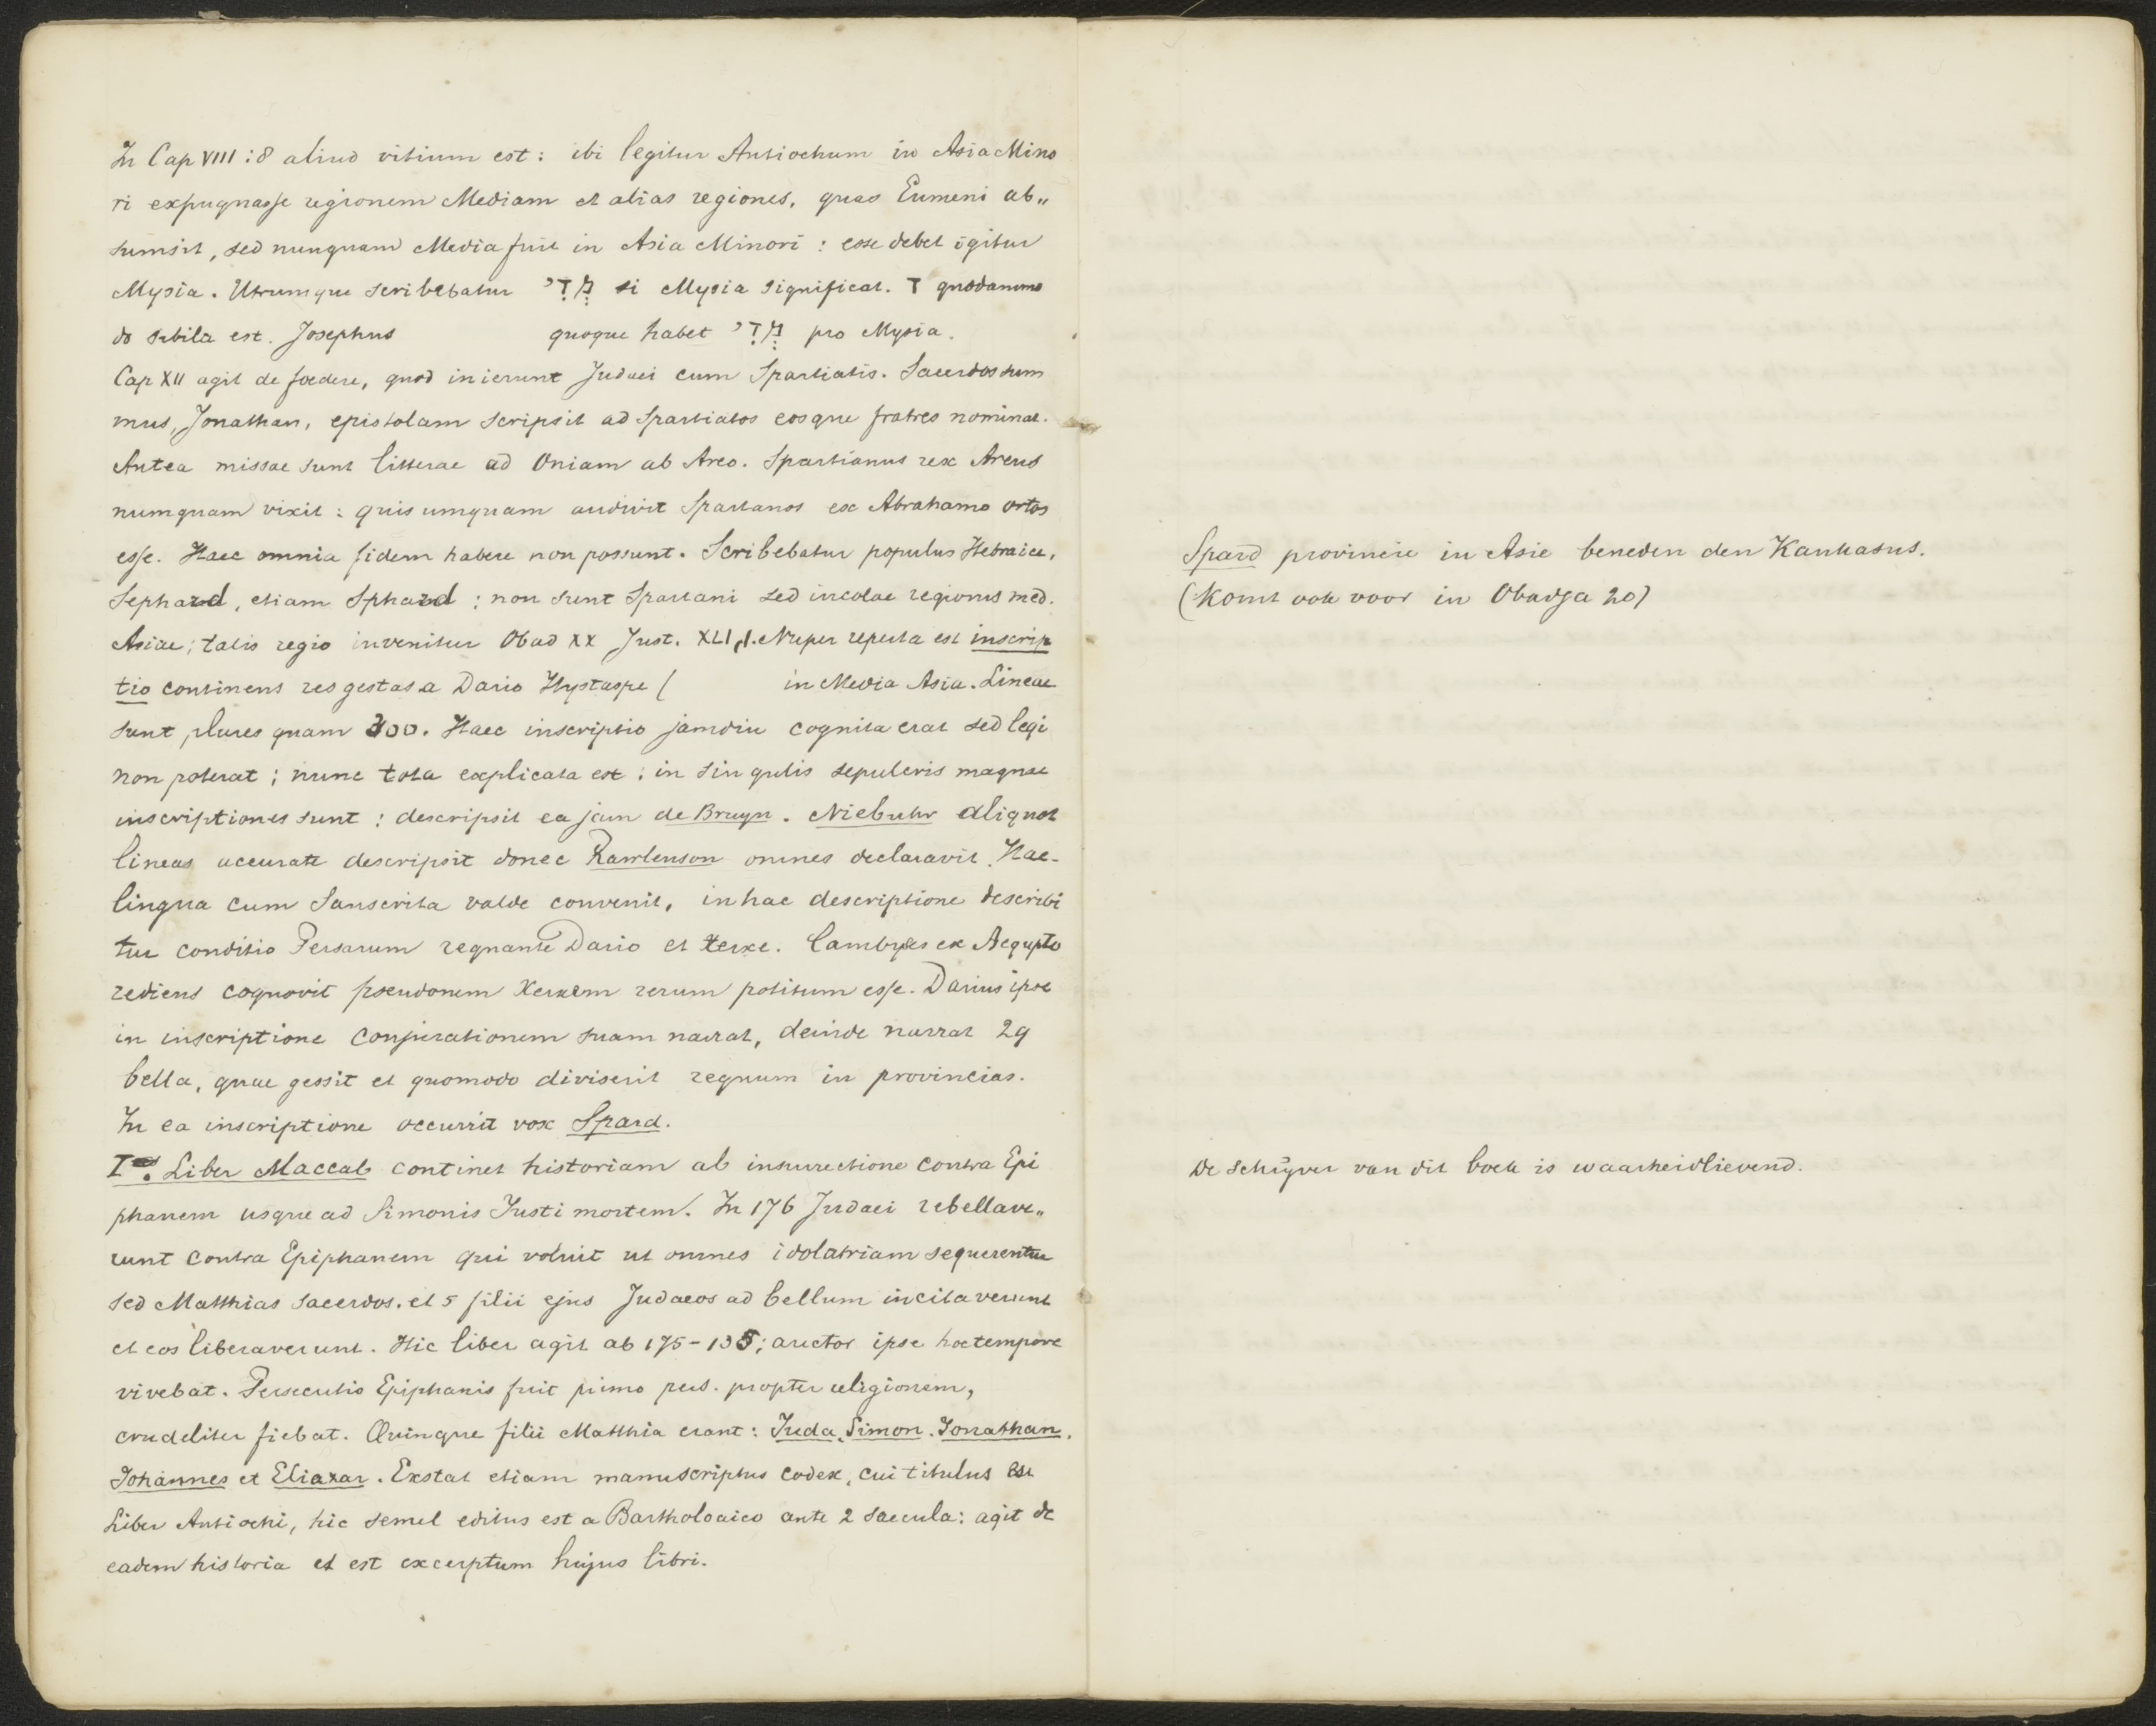 In Cap VIII : 8 aliud vitium est : ibi legitur Antiochum in Asia Mino
ri expugnasse regionem Mediam et alias regiones, quas Eumeni ab„
sumsit, sed nunquam Media fuit in Asia Minori : esse debet igitur
Mysia. Utrumque scribebatur מָדַי si Mysia significat. T quodammo
do sibila est. Josephus quoque habet מָדַי pro Mysia.
Cap XII agit de foedere, quod inierunt Judaei cum Spartiatis. Sacerdos sum
mus, Jonathan, epistolam scripsit ad Spartiatos eosque fratres nominat.
Antea missae sunt litterae ad Oniam ab Areo. Spartianus rex Areus
numquam vixit : quis umquam audivit Spartanos ex Abrahamo ortos
esse. Haec omnia fidem habere non possunt. Scribebatur populus Hebraice,
Sephard, etiam Sphard ; non sunt Spartani sed incolae regionis med.
Asiae ; talis regio invenitur Obad XX Just. XLI, 1. Nuper reperta est inscrip
tio continens res gestas a Dario Hystaspe ( in Media Asia. Lineae
sunt plures quam 300. Haec inscriptio jamdiu cognita erat sed legi
non poterat ; nunc tota explicata est ; in singulis sepulcris magnae
inscriptiones sunt : descripsit ea jam de Bruyn. Niebuhr aliquot
lineas accurate descripsit donec Rawlenson omnes declaravit. Hae-
lingua cum Sanscrita valde convenit, in hac descriptione describi
tur conditio Persarum regnante Dario et Xerxe. Cambyses ex Aegypto
rediens cognovit pseudonem Xerxem rerum potitum esse. Darius ipse
in inscriptione conjurationem suam narrat, deinde narrat 29
bella, quae gessit et quomodo diviserit regnum in provincias.
In ea inscriptione occurrit vox Spard.
I. Liber Maccab continet historiam ab insurrectione contra Epi
phanem usque ad Simonis Justi mortem. In 176 Judaei rebellave„
runt contra Epiphanem qui voluit ut omnes idolatriam sequerentur
sed Matthias sacerdos. et 5 filii ejus Judaeos ad bellum incitaverunt
et eos liberaverunt. Hic liber agit ab 175-135; auctor ipse hoc tempore
vivebat. Persecutio Epiphanis fuit primo pers. propter religionem,
crudeliter fiebat. Quinque filii Matthia erant : Juda, Simon, Jonathan,
Johannes et Eliazar. Exstat etiam manuscriptus codex, cui titulus est
Liber Antiochi, hic semel editus est a Bartholoaico ante 2 saecula: agit de
eadem historia et est excerptum hujus libri.
Spard provincie in Asie beneden den Kaukasus.
(Komt ook voor in Obadja 20)
De schrijver van dit boek is waarheidlievend.